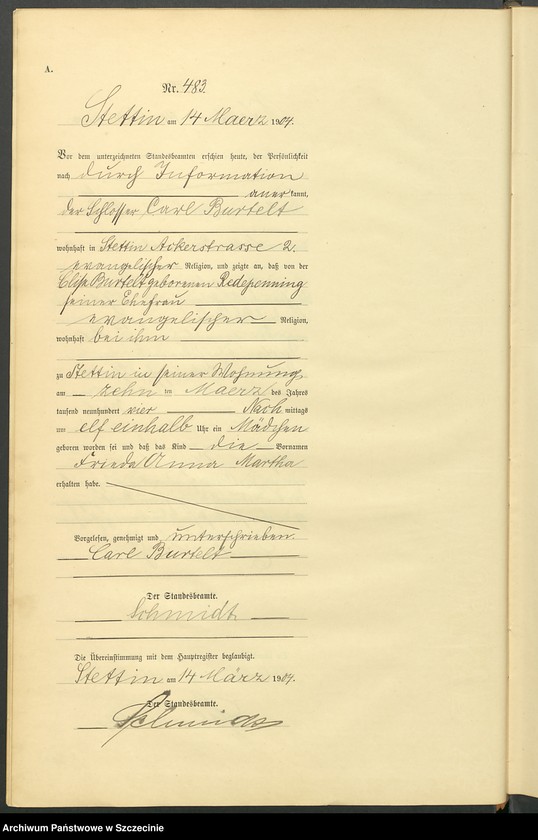 A.
Nr. 483.
Stettin am 14 Maerz 1904.
Vor dem unterzeichneten Standesbeamten erschien heute, der Persönlichkeit
nach durch Information
aner kannt,
der Schlosser Carl Burtelt
wohnhaft in Stettin Ackerstrasse 2.
evangelischer Religion, und zeigte an, daß von der
Elise Burtelt geborenen Redepenning
seiner Ehefrau
evangelischer Religion,
wohnhaft bei ihm
zu Stettin in seiner Wohnung
am zehn ten Maerz des Jahres
tausend neunhundert vier Nach mittags
um elf einhalb Uhr ein Mädchen
geboren worden sei und daß das Kind die Vornamen
Frieda Anna Martha
erhalten habe.
Vorgelesen, genehmigt und unterschrieben.
Carl Burtelt
Der Standesbeamte.
Schmidt.
Die Übereinstimmung mit dem Hauptregister beglaubigt.
Stettin am 14 März 1904.
Der Standesbeamte.
Schmidt
Archiwum Państwowe w Szczecinie